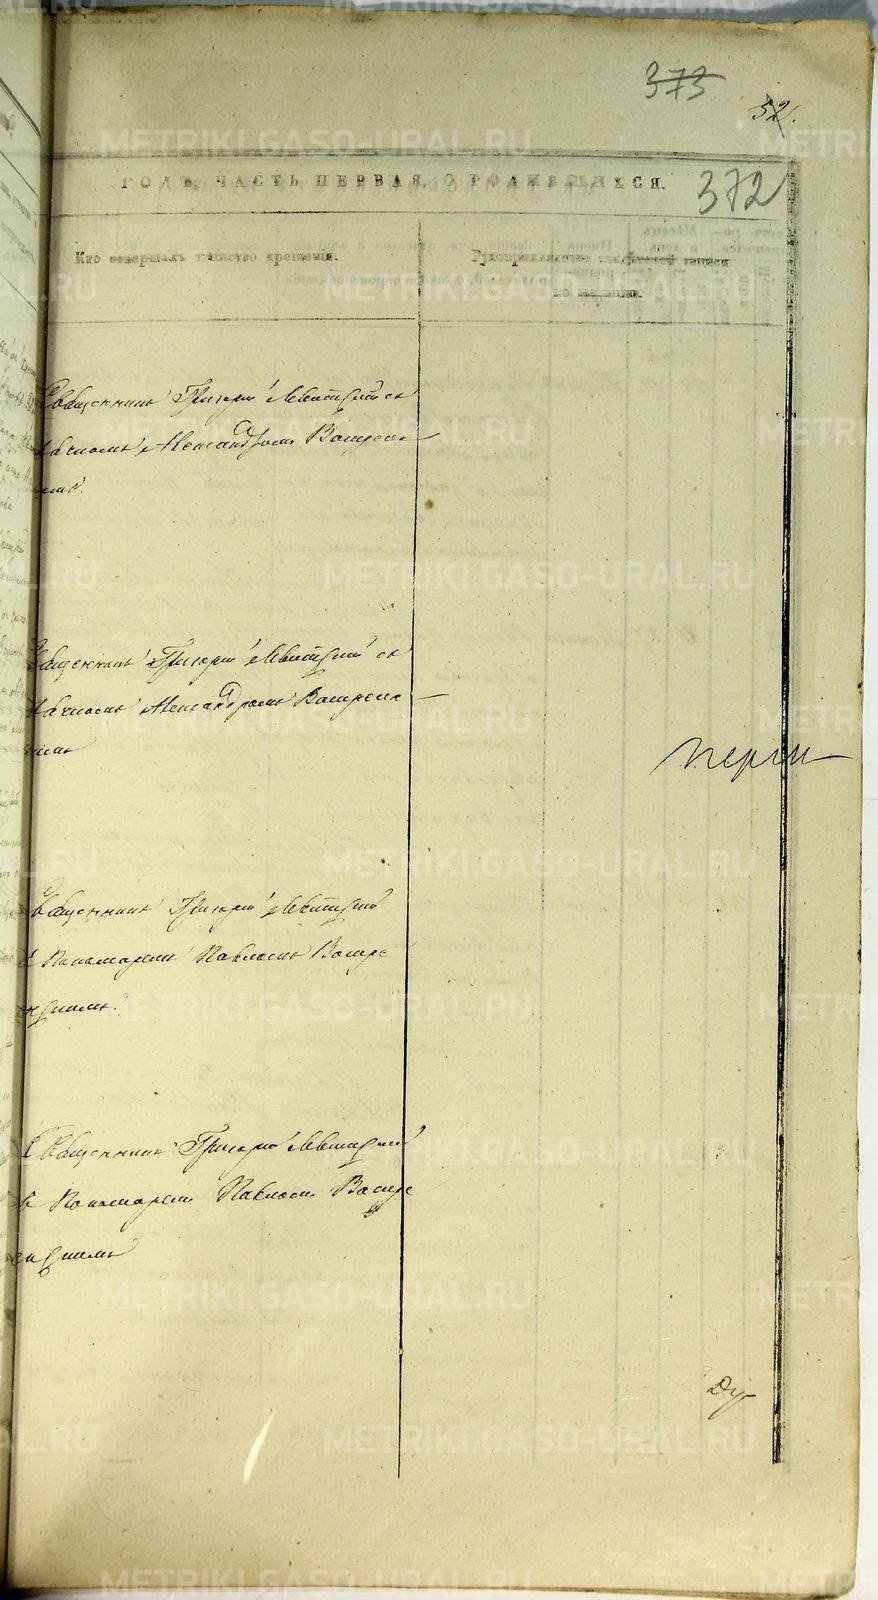 373
52.
ГОДЪ, ЧАСТЬ ПЕРВАЯ, О РОДИВШИХСЯ.
372
Кто совершалъ таинство крещенія.
Рукоприкладство свидѣтелей записи
по желанію.
Священникъ Григорій Левитскій съ
Александромъ Воскресен
Священникъ Григорій Левитскій съ
Александромъ Воскресен
скимъ
Священникъ Григорій Левитскій
съ Пономаремъ Павломъ Воскре
сенскимъ.
Священникъ Григорій Левитскій
съ Пономаремъ Павломъ Воскре
сенскимъ
METRIKI.GASO-URAL.RU